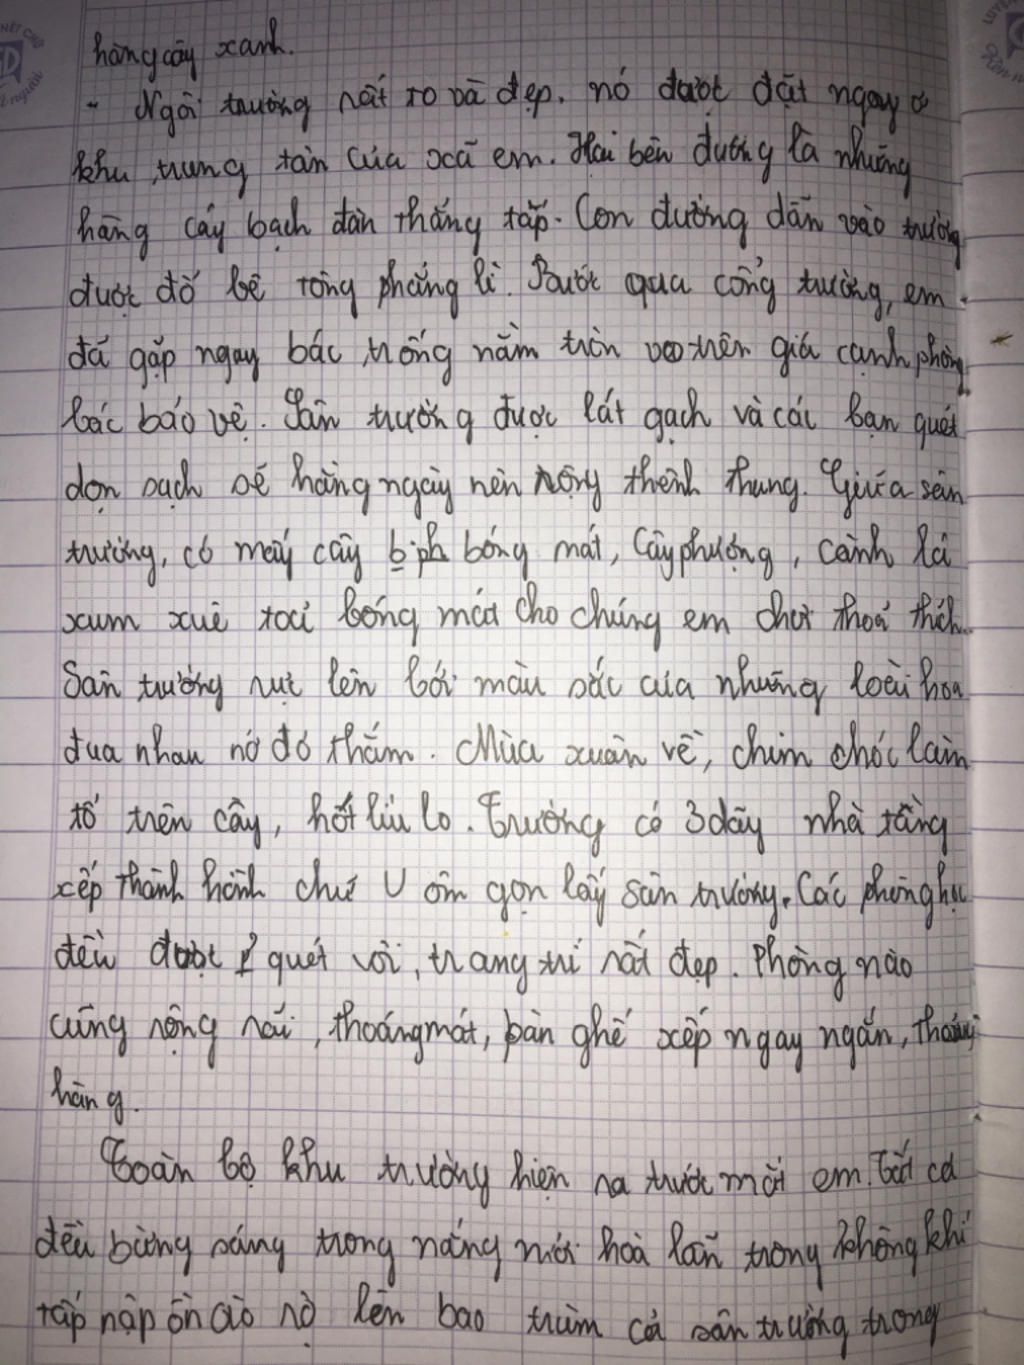 hàng cây xanh.
- Ngôi trường rất to và đẹp. nó được đặt ngay ở
khu trung tân của xã em. Hai bên đường là những
hàng cây bạch đàn thẳng tắp. Con đường dẫn vào trường
được đổ bê tông phẳng lì. Bước qua cổng trường, em
đã gặp ngay bác trống nằm tròn vo trên giá cạnh phòng
bác bảo vệ. Sân trường được lát gạch và các bạn quét
dọn sạch sẽ hàng ngày nên rộng thênh thung. Giữa sân
trường, có mấy cây b.ph bóng mát, Cây phượng, cành lá
xum xuê toả bóng mát cho chúng em chơi thoả thích.
Sân trường rực lên bởi màu sắc của những loài hoa
đua nhau nở đỏ thắm. Mùa xuân về, chim chóc làm
tổ trên cây, hót líu lo. Trường có 3 dãy nhà tầng
xếp thành hình chữ U ôm gọn lấy sân trường. Các phòng học
đều được quét vôi, trang trí rất đẹp. Phòng nào
cũng rộng rãi, thoáng mát, bàn ghế xếp ngay ngắn, thẳng
hàng.
Toàn bộ khu trường hiện ra trước mắt em. Tất cả
đều bừng sáng trong nắng mới hoà lẫn trong không khí
tấp nập ồn ào nở lên bao trùm cả sân trường trong